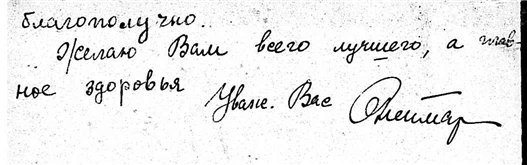 благополучно..
Желаю Вам всего лучшего, а глав-
ное здоровья
Уваж. Вас